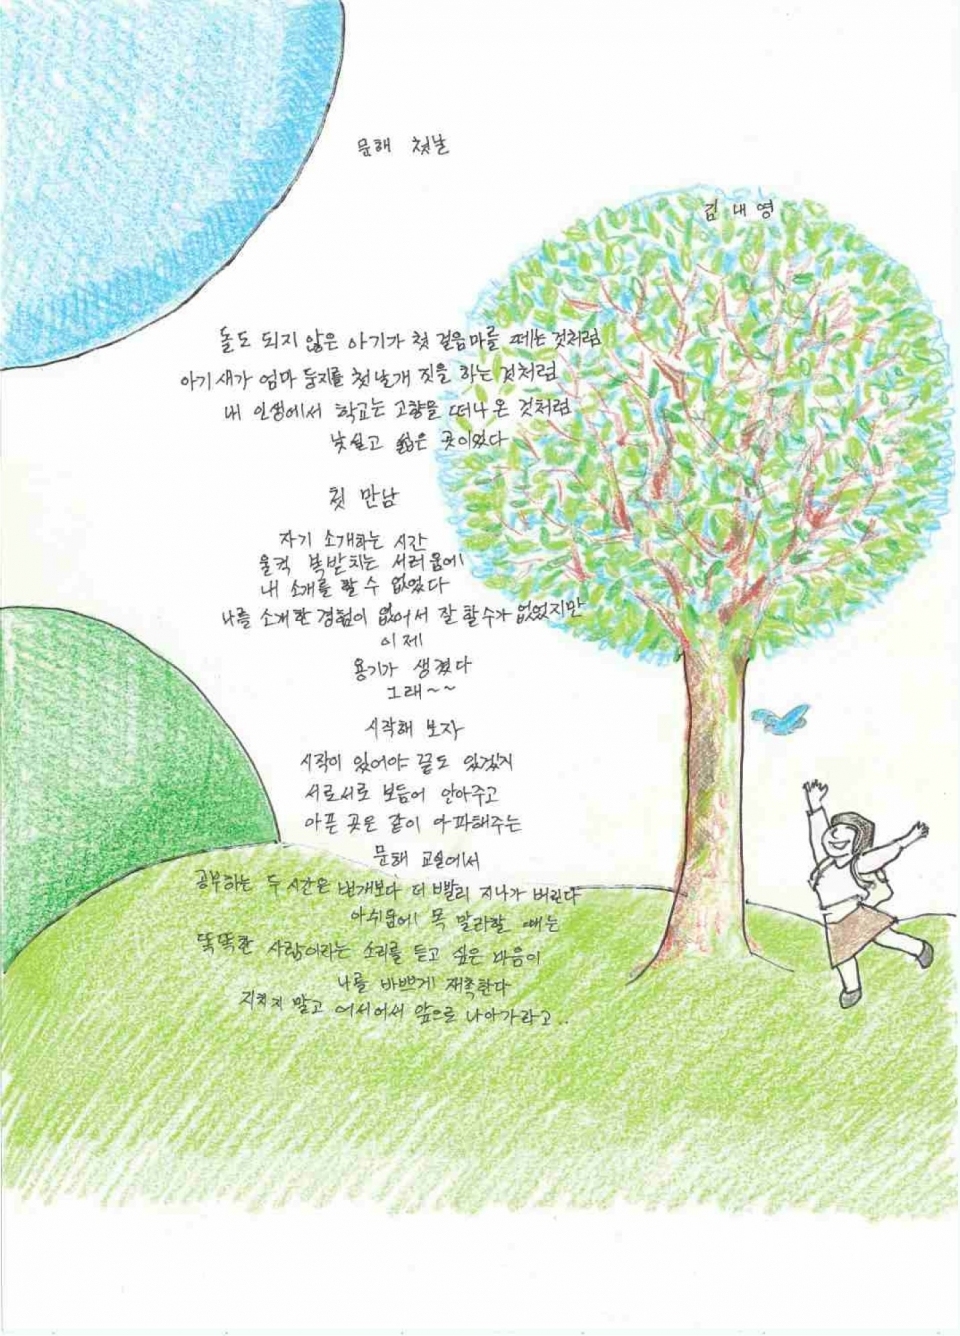 문해 첫날
김 내 영
돌도 되지 않은 아기가 첫 걸음마를 떼는 것처럼
아기 새가 엄마 둥지를 첫 날개 짓을 하는 것처럼
내 인생에서 학교는 고향을 떠나 온 것처럼
낯설고 설은 곳이였다
첫 만남
자기 소개하는 시간
울컥 복받치는 서러움에
내 소개를 할 수 없었다
나를 소개한 경험이 없어서 잘 할 수가 없었지만
이제
용기가 생겼다
그래~~
시작해 보자
시작이 있어야 끝도 있겠지
서로서로 보듬어 안아주고
아픈 곳은 같이 아파해주는
문해 교실에서
공부하는 두 시간은 번개보다 더 빨리 지나가 버린다
아쉬움에 목 말라할 때는
똑똑한 사람이라는 소리를 듣고 싶은 마음이
나를 바쁘게 재촉한다
지치지 말고 어서어서 앞으로 나아가라고..